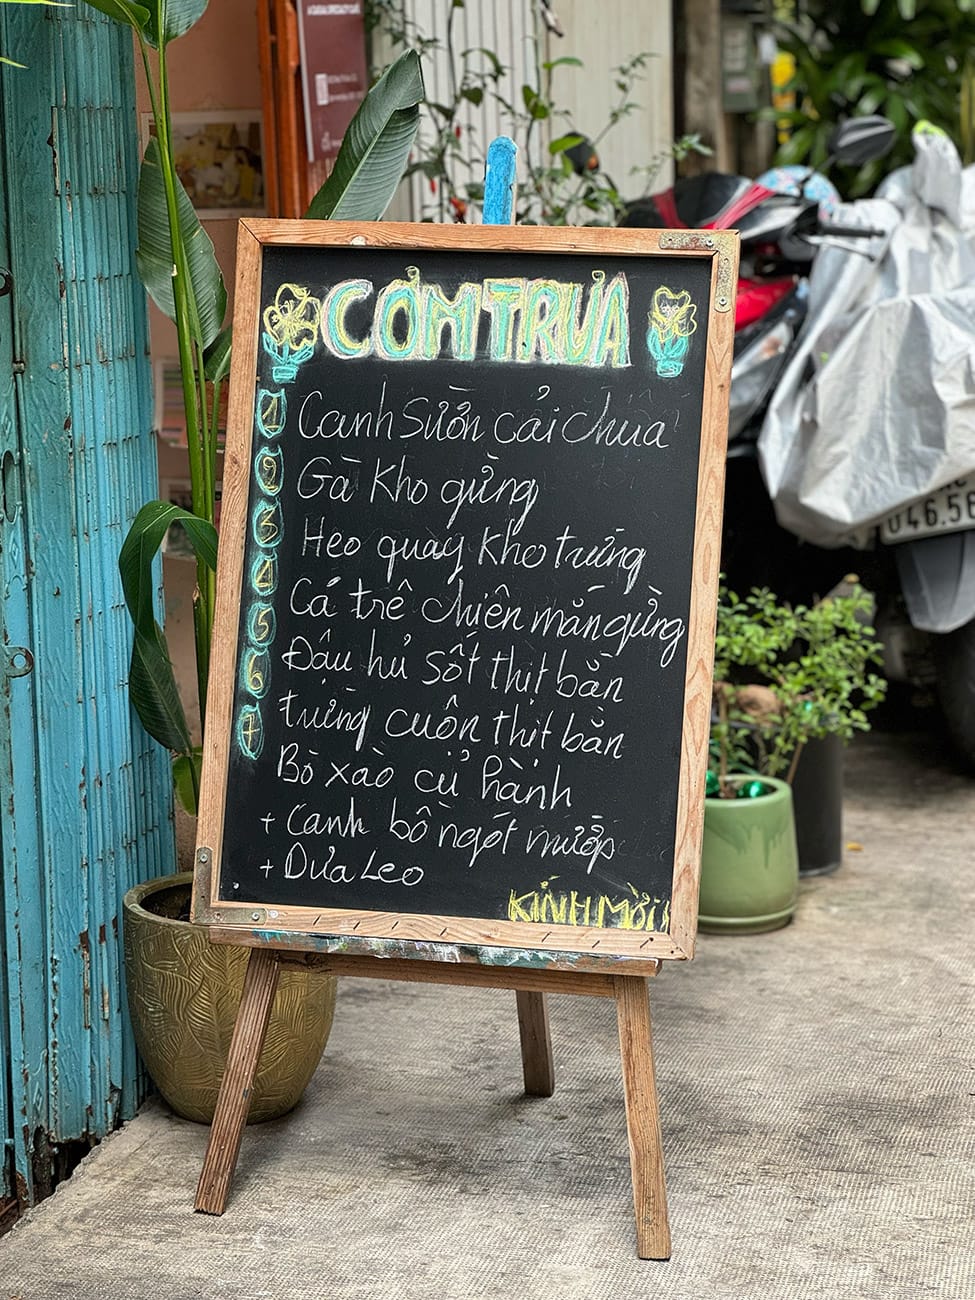 CƠM TRƯA
1 Canh Sườn cải chua
2 Gà Kho gừng
3 Heo quay kho trứng
4 Cá trê chiên mắm gừng
5 Đậu hủ sốt thịt bằm
6 trứng cuộn thịt bằm
7 Bò xào củ hành
+ Canh bồ ngót mướp
+ Dưa Leo
KÍNH MỜI
046.56